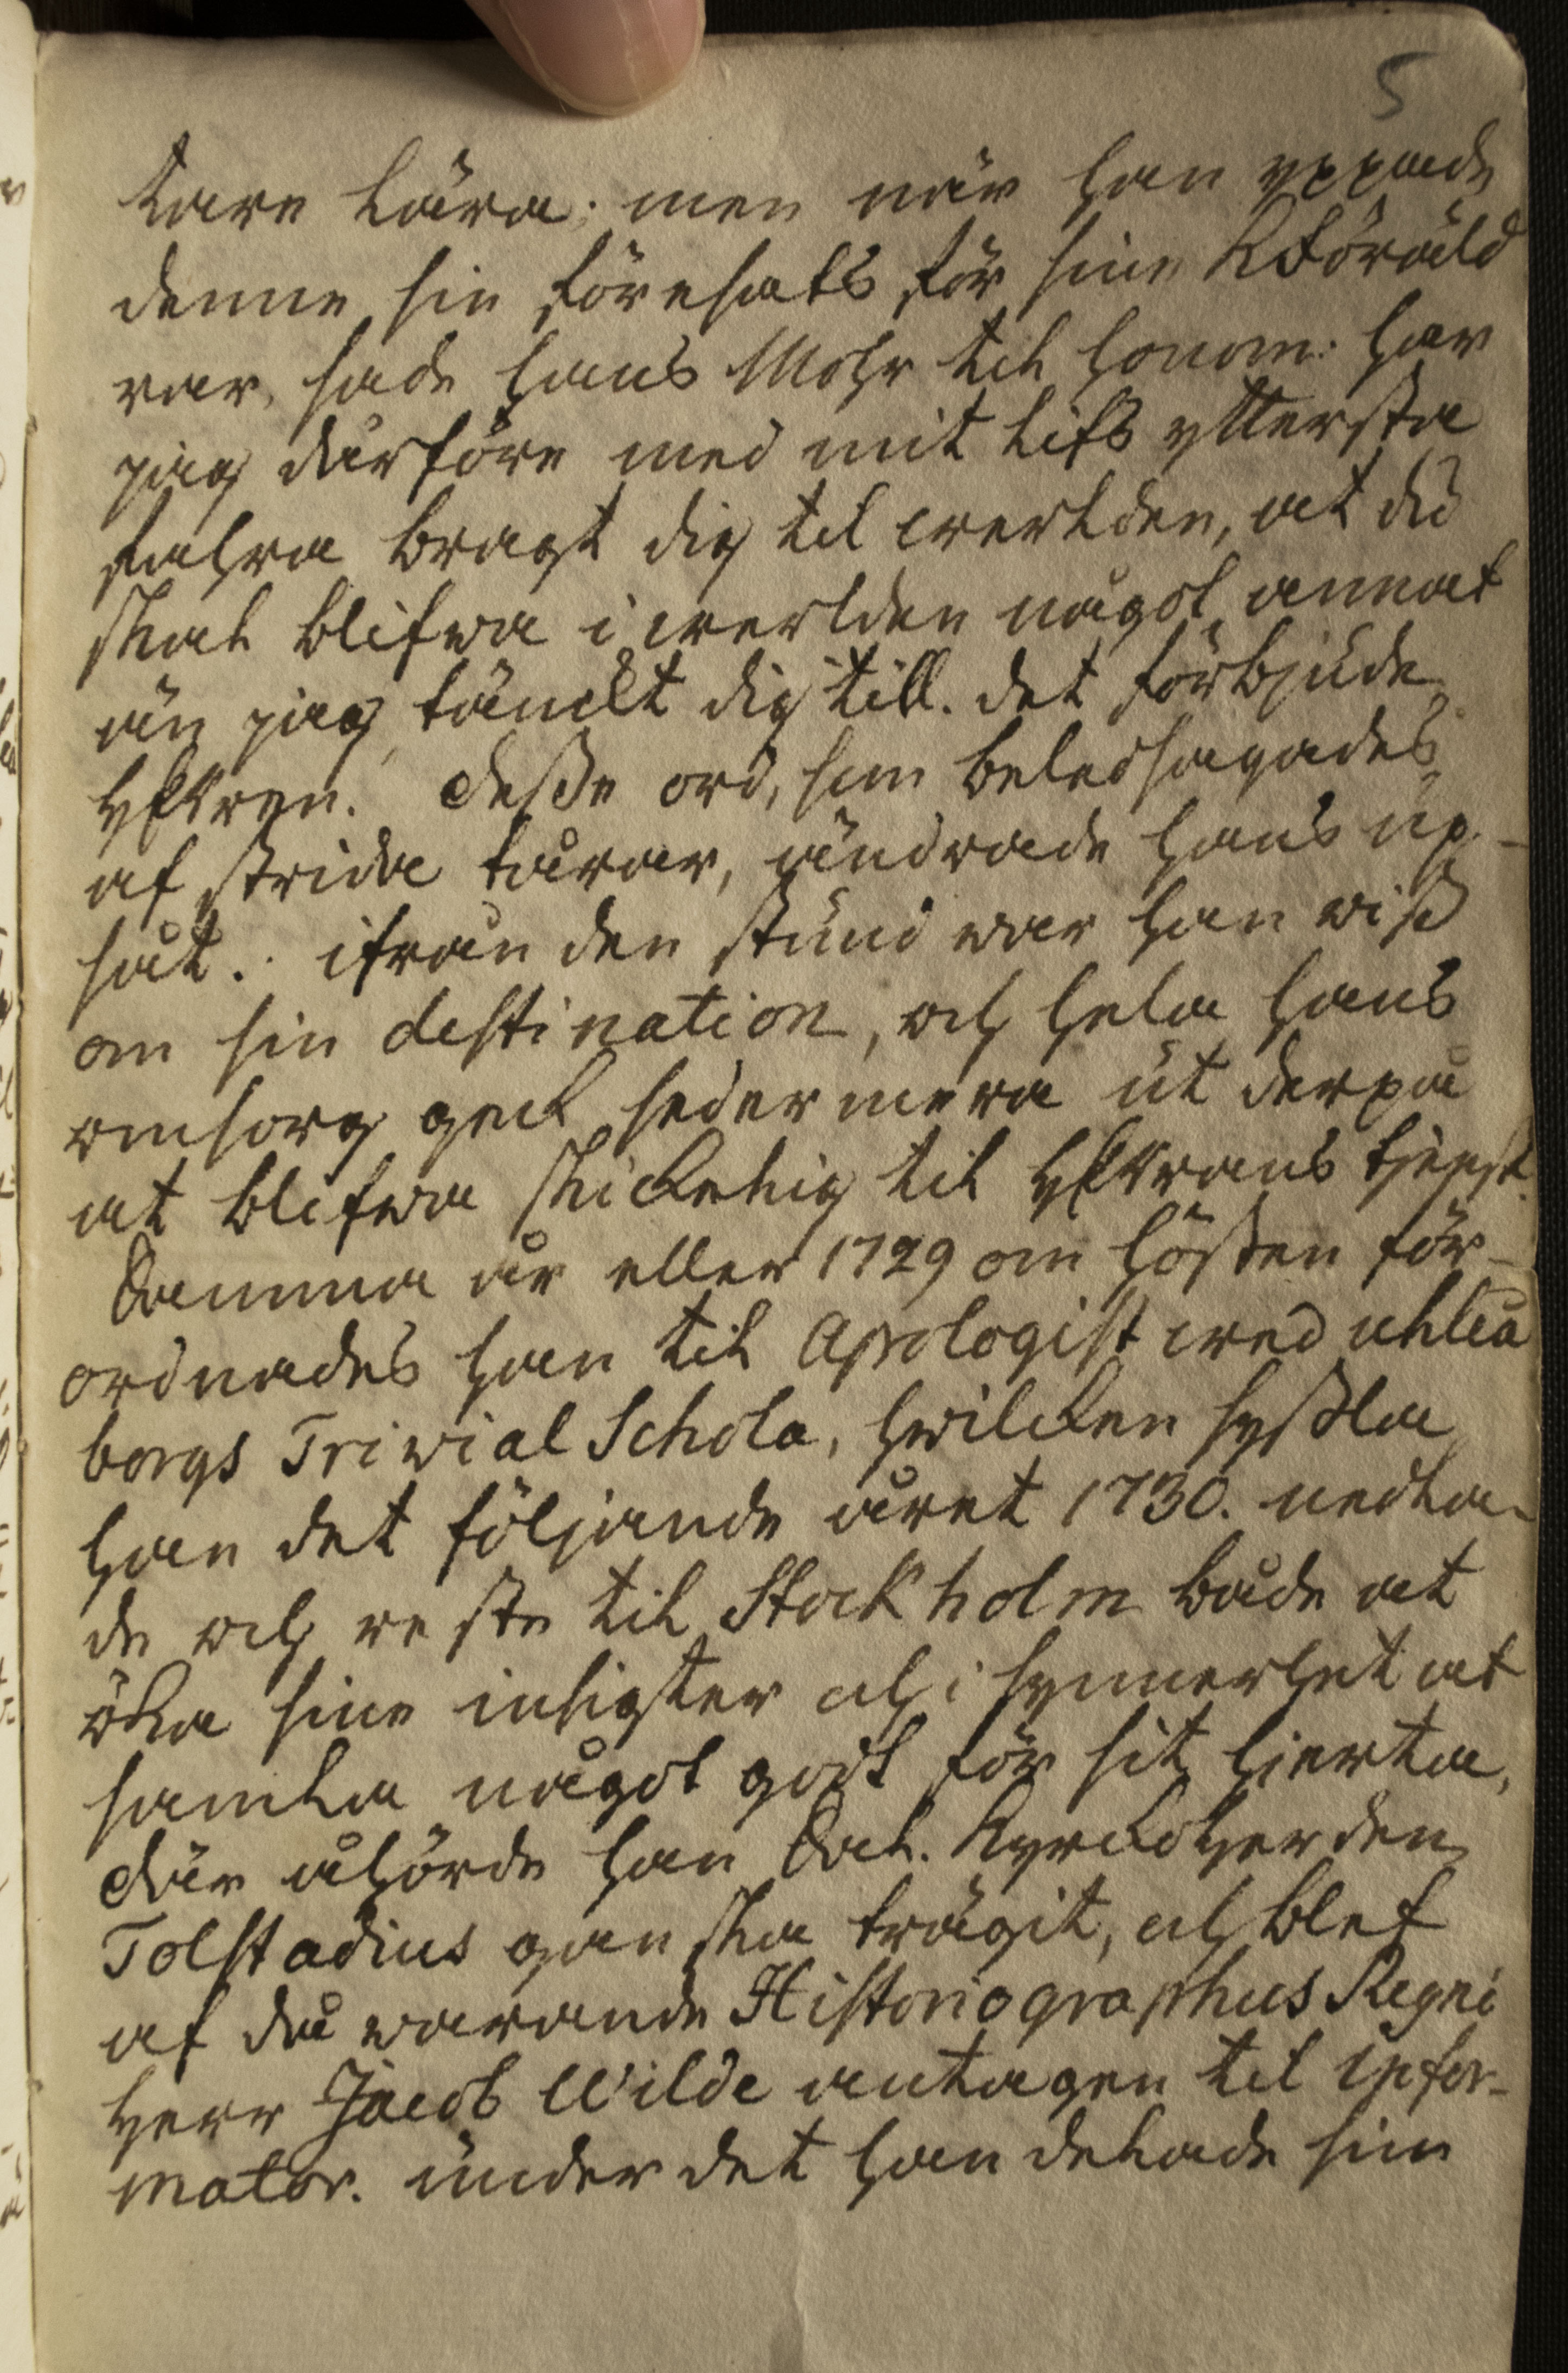 5
tare lära; men när han yppade
denne sin föresats för sine K Föräld
rar, sade hans Mohr til honom: har
jag därföre med mit lifs yttersta
fahra bragt dig til werlden, at du
skal blifwa i werlden något annat
än jag tänckt dig till. det förbjude
HERren. Desse ord, som beledsagades
af strida tårar, ändrade hans up-
såt. ifrån den stund war han wiß
om sin destination, och hela hans
omsorg geck sedermera ut derpå
at blifwa skickelig til HERrans tjenst.
Samma år eller 1729 om hösten för-
ordnades han til Apologist wed uhleå
borgs Triwial Schola, hwilcken sysßla
han det följande året 1730. nedla-
de och reste til Stockholm både at
öka sine insigter och i synnerhet at
samla något godt för sit hjerta,
där åhörde han Sal. Kyrckoherden
Tolstadius ganska trägit, och blef
af då warande Historiographus Regni
Herr Jacob Wilde antagen til infor-
mator. under det han delade sin